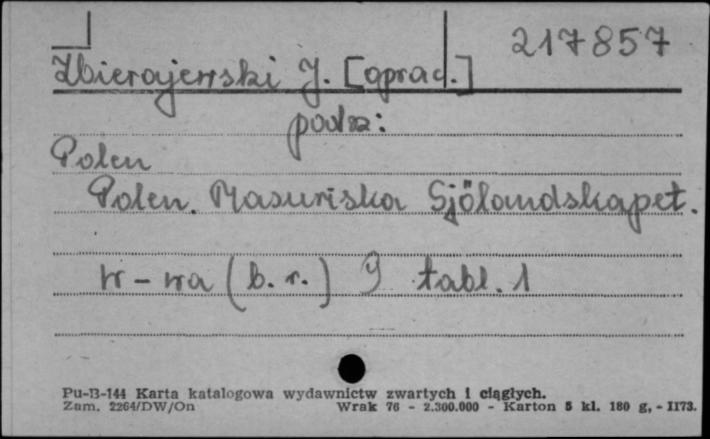 217857
Zbierajewski J. [oprac.]
podsz:
Polen
Polen. Masuriska Sjölandskapet.
W-wa (b. r.) tabl. 1
Pu-B-144 Karta katalogowa wydawnictw zwartych i ciągłych.
Zam. 2264/DW/On Wrak 76 - 2.300.000 - Karton 5 kl. 180 g, - II73.